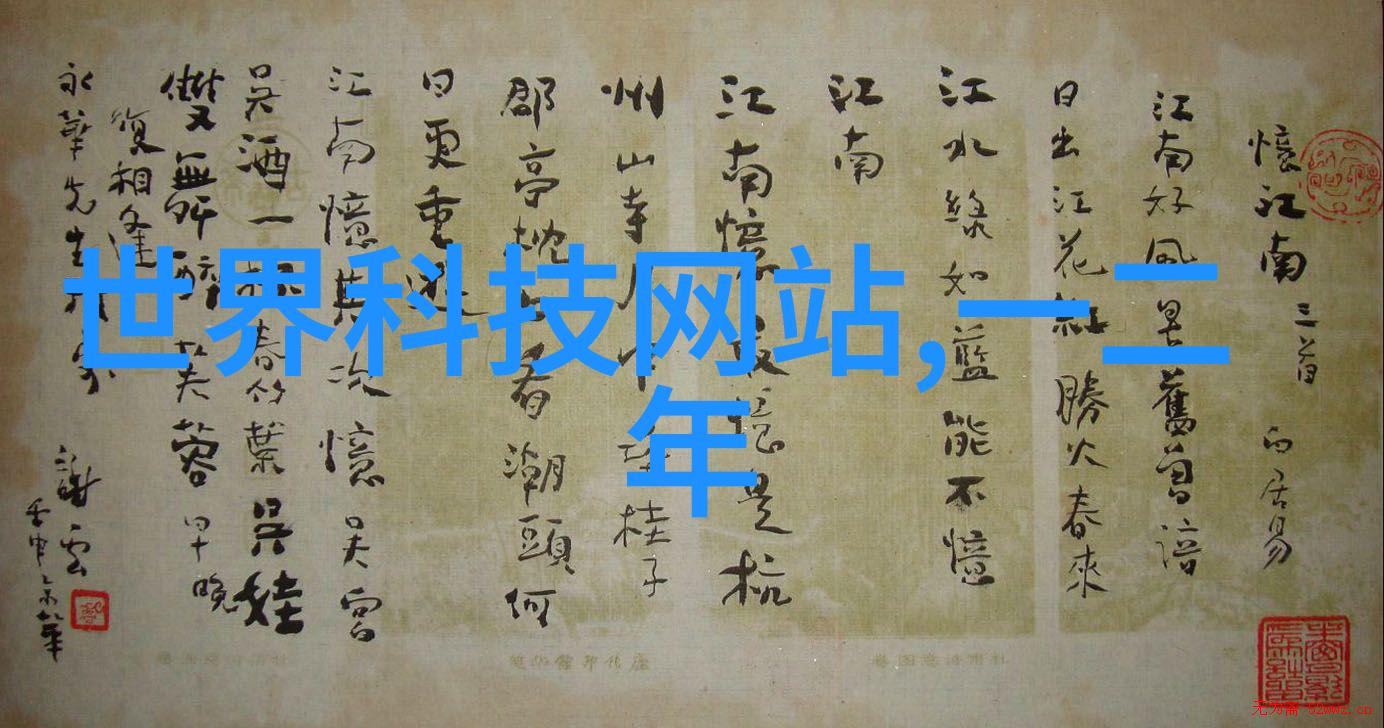 憶江南 三首 白居易
江南好風景舊曾諳
日出江花紅勝火春來
江水綠如藍能不憶
江南
江南憶最憶是杭
州山寺月中尋桂子
郡亭枕上看潮頭何
日更重遊
江南憶其次憶吳宮
吳酒一杯春竹葉吳娃
雙舞醉芙蓉早晚
復相逢
永華先生
謝雲
壬申
世界科技网站,一二
年